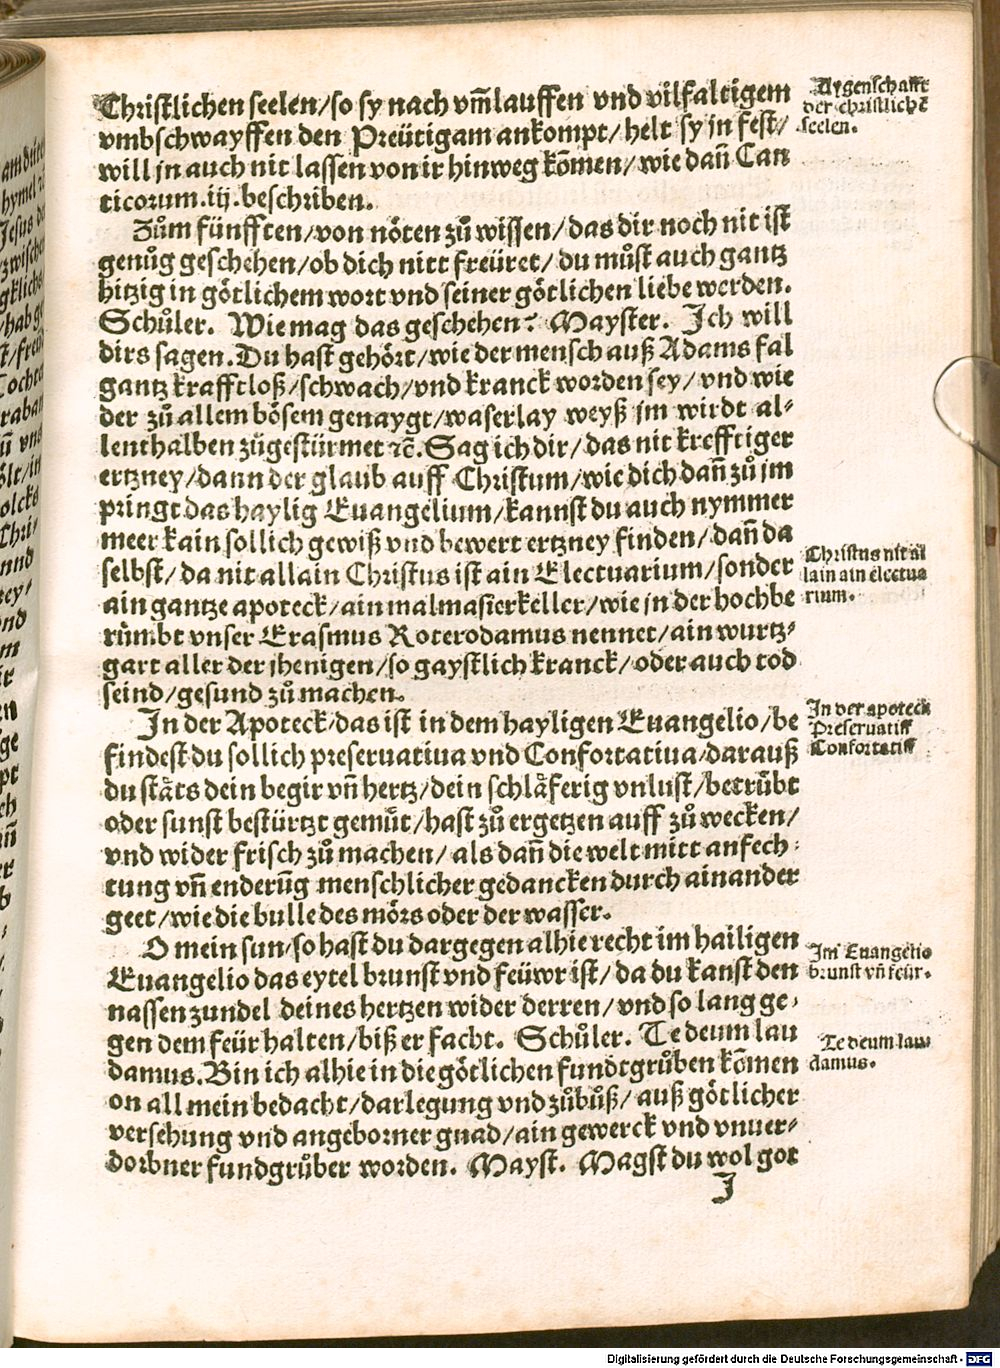 Christlichen seelen/so sy nach vm̄lauffen vnd vilfaltigem
vmbschwayffen den Preütigam ankompt/helt sy jn fest/
will jn auch nit lassen von ir hinweg kōmen/wie dañ Can
ticorum.iij.beschriben.
Zům fünfften/von nöten zů wissen/das dir noch nit ist
genůg geschehen/ob dich nitt freüret/du můst auch gantz
hitzig in götlichem wort vnd seiner götlichen liebe werden.
Schůler. Wie mag das geschehen? Mayster. Ich will
dirs sagen.Du hast gehört/wie der mensch auß Adams fal
gantz krafftloß/schwach/vnd kranck worden sey/vnd wie
der zů allem bösem genaygt/waserlay weyß jm wirdt al-
lenthalben zůgestürmet ꝛc̄.Sag ich dir/das nit krefftiger
ertzney/dann der glaub auff Christum/wie dich dañ zů jm
pringt das haylig Euangelium/kannst du auch nymmer
meer kain sollich gewiß vnd bewert ertzney finden/dañ da
selbst/da nit allain Christus ist ain Electuarium/sonder
ain gantze apoteck/ain malmasierkeller/wie jn der hochbe
růmbt vnser Erasmus Roterodamus nennet/ain wurtz-
gart aller der jhenigen/so gaystlich kranck/oder auch tod
seind/gesund zů machen.
In der Apoteck/das ist in dem hayligen Euangelio/be
findest du sollich preseruatiua vnd Confortatiua/darauß
du stäts dein begir vñ hertz/dein schläferig vnlust/betrůbt
oder sunst bestürtzt gemůt/hast zů ergetzen auff zů wecken/
vnd wider frisch zů machen/als dañ die welt mitt anfech-
tung vñ enderūg menschlicher gedancken durch ainander
geet/wie die bulle des mörs oder der wasser.
O mein sun/so hast du dargegen alhie recht im hailigen
Euangelio das eytel brunst vnd feüwr ist/da du kanst den
nassen zundel deines hertzen wider derren/vnd so lang ge-
gen dem feür halten/biß er facht. Schůler. Te deum lau
damus.Bin ich alhie in die götlichen fundtgrůben kōmen
on all mein bedacht/darlegung vnd zůbůß/auß götlicher
versehung vnd angeborner gnad/ain gewerck vnd vnuer-
dorbner fundgrůber worden. Mayst. Magst du wol got
I
Aygenschafft
der christlichē
seelen.
Christus nit al
lain ain electua
rium.
In der apoteck
Preseruatiff
Confortatiff
Im Euangelio
brunst vñ feür.
Te deum lau
damus.
Digitalisierung gefördert durch die Deutsche Forschungsgemeinschaft - DFG